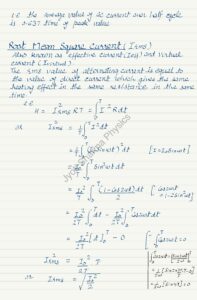 i.e the average value of ac current over half cycle
is 0.637 time of peak value
Root Mean Square Current (Irms)
Also known as "effective current (Ieff) and virtual
current (Ivirtual)
The rms value of alternating current is equal to
the value of direct current which gives the same
heating effect in the same resistance in the same
time.
i.e
H = I²rms RT = ∫₀ᵀ I² R dt
or I²rms = 1/T ∫₀ᵀ I² dt
= 1/T ∫₀ᵀ (I₀ sin ωt)² dt [I = I₀ sin ωt]
= I₀²/T ∫₀ᵀ sin² ωt dt
= I₀²/T ∫₀ᵀ (1 - cos 2ωt)/2 dt
= I₀²/2T ∫₀ᵀ dt - I₀²/2T ∫₀ᵀ cos 2ωt dt
= I₀²/2T [t]₀ᵀ - 0
I²rms = I₀²/2T T
or Irms = √I₀²/2
Physics